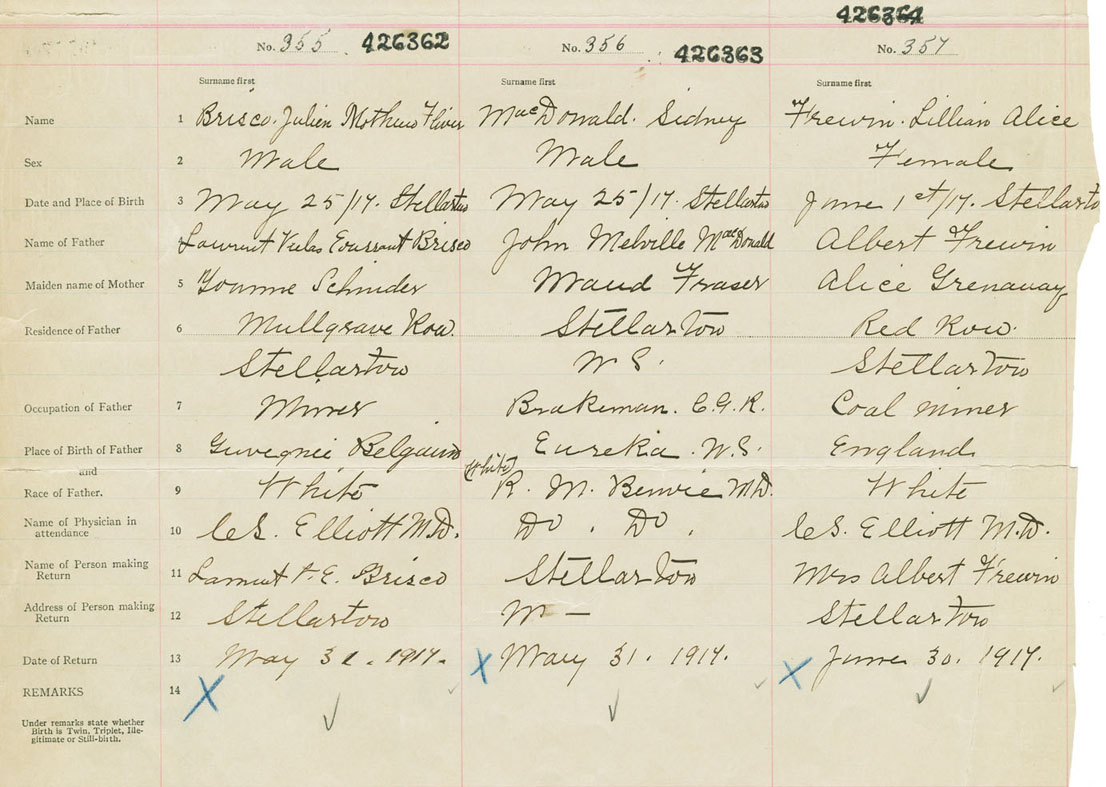 426364
No. 355 426362 No. 356 426363 No. 357
Surname first Surname first Surname first
Name 1 Brisco. Julien MacDonald. Sidney Frewin. Lillian Alice
Sex 2 Male Male Female
Date and Place of Birth 3 May 25/17. Stellarton May 25/17. Stellarton June 1st/17. Stellarto
Name of Father Brisco John Melville MacDonald Albert Frewin
Maiden name of Mother 5 Schnider Maud Fraser Alice Grenaway
Residence of Father 6 Mullgrave Row. Stellarton Red Row.
Stellarton N S. Stellarton
Occupation of Father 7 Miner Brakeman. C.G.R. Coal miner
Place of Birth of Father 8 Belgium Eureka. N.S. England
and White
Race of Father. 9 White R. M. Benvie M.D. White
Name of Physician in
attendance 10 C.S. Elliott M.D. Do . Do . C.S. Elliott M.D.
Name of Person making
Return 11 E. Brisco Stellarton Mrs Albert Frewin
Address of Person making
Return 12 Stellarton N — Stellarton
Date of Return 13 May 31. 1917. X May 31. 1917. X June 30. 1917.
REMARKS 14 X
Under remarks state whether
Birth is Twin, Triplet, Ille-
gitimate or Still-birth.